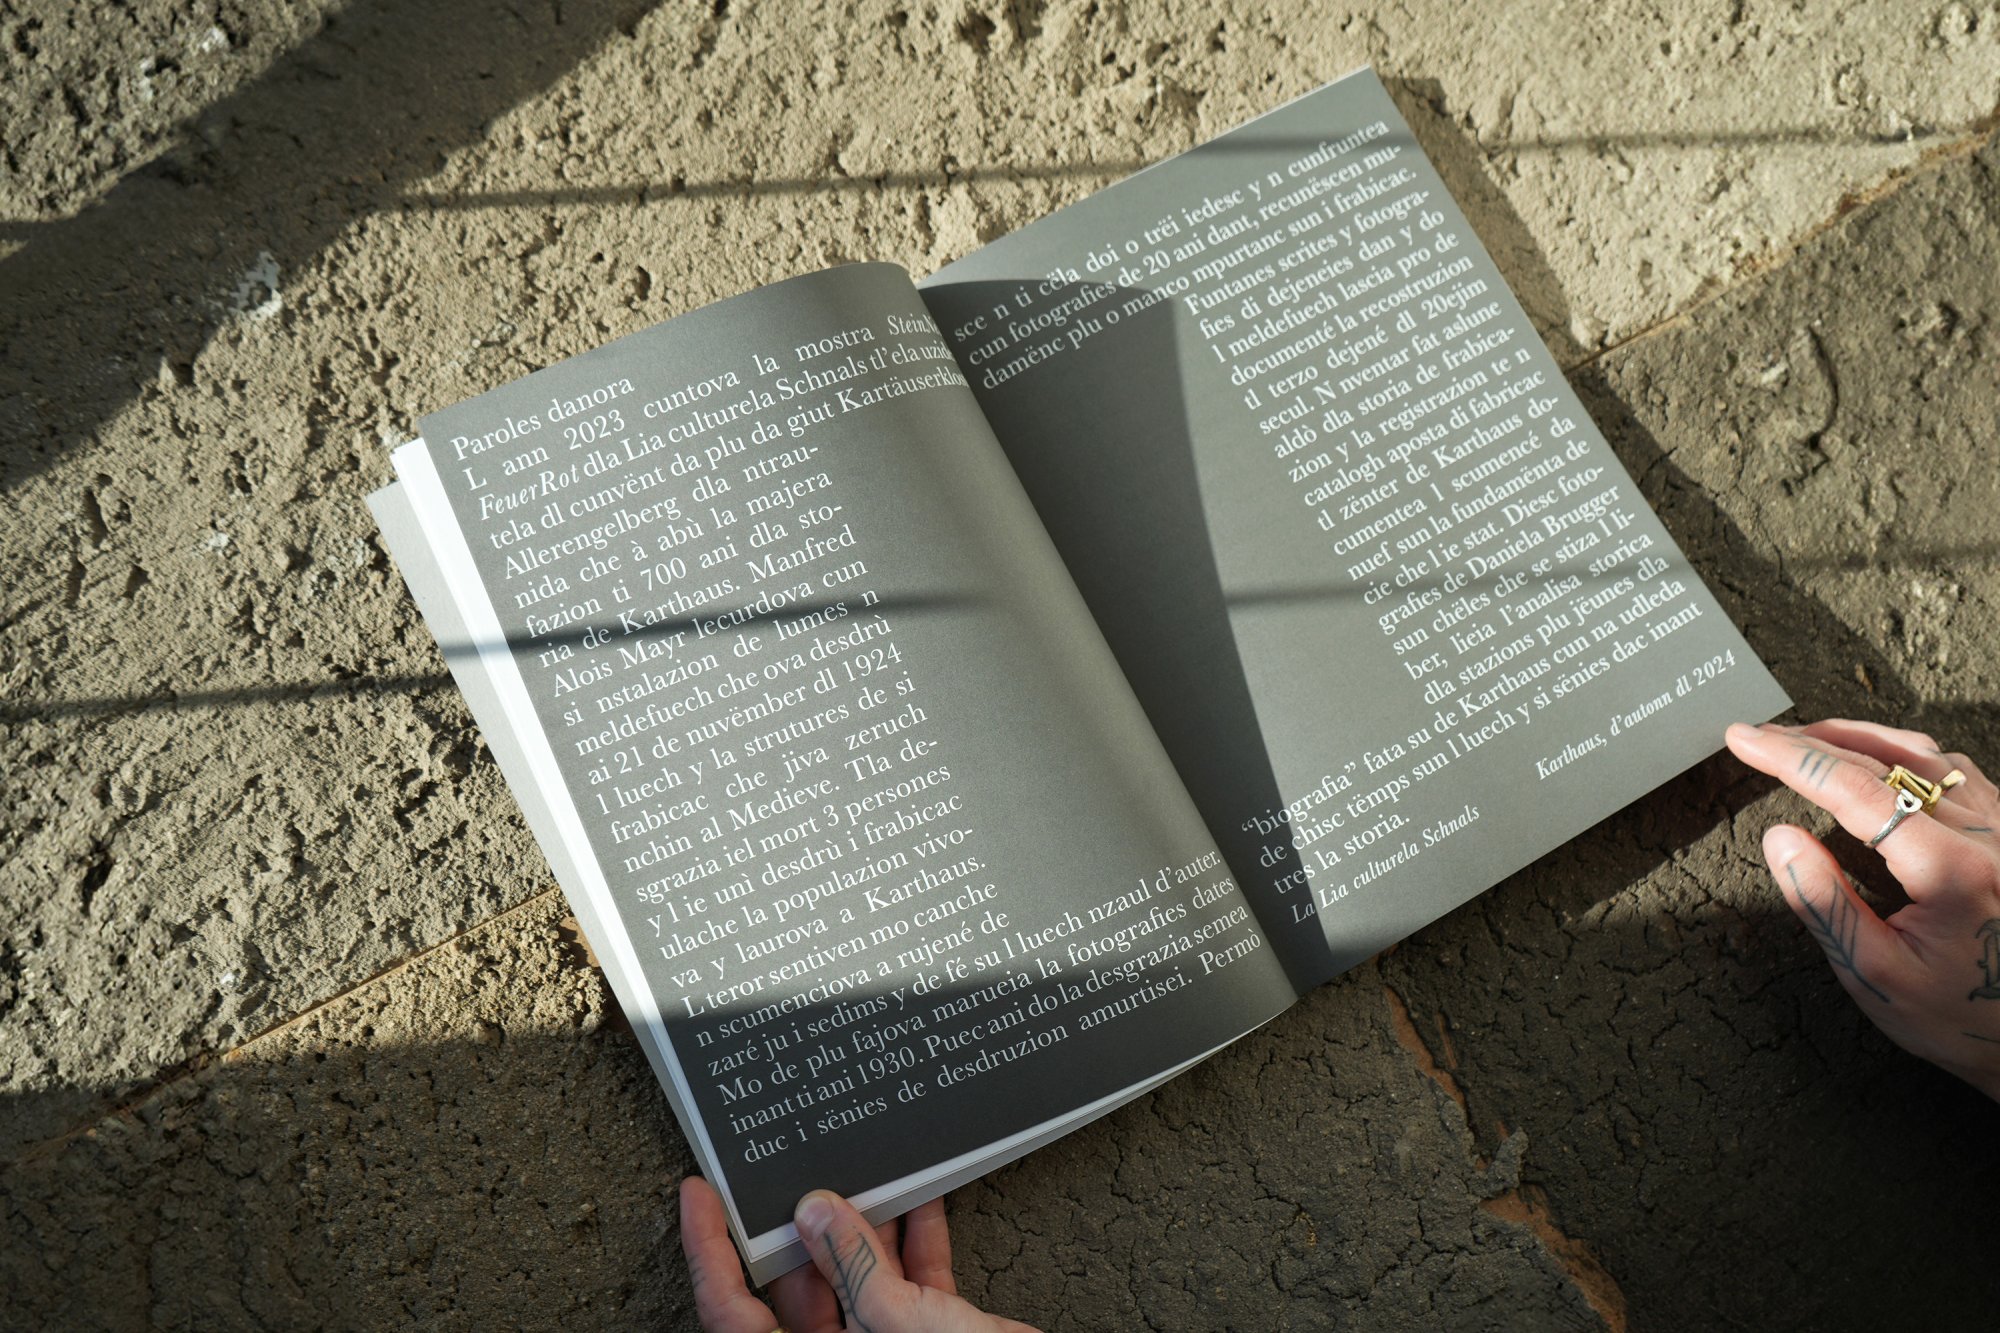 Paroles danora
L ann 2023 cuntova la mostra Stein.
FeuerRot dla Lia culturela Schnals tl' ela uzid
tela dl cunvënt da plu da giut Kartäuserklos
Allerengelberg dla ntrau-
nida che à abù la majera
fazion ti 700 ani dla sto-
ria de Karthaus. Manfred
Alois Mayr lecurdova cun
si nstalazion de lumes n
meldefuech che ova desdrù
ai 21 de nuvëmber dl 1924
l luech y la strutures de si
frabicac che jiva zeruch
nchin al Medieve. Tla de-
sgrazia iel mort 3 persones
y l ie unì desdrù i frabicac
ulache la populazion vivo-
va y laurova a Karthaus.
L teror sentiven mo canche
n scumenciova a rujené de
zaré ju i sedims y de fé su l luech nzaul d'auter.
Mo de plu fajova marueia la fotografies dates
inant ti ani 1930. Puec ani do la desgrazia semea
duc i sënies de desdruzion amurtisei. Permò
sce n ti cëla doi o trëi iedesc y n cunfruntea
cun fotografies de 20 ani dant, recunëscen mu-
damënc plu o manco mpurtanc sun i frabicac.
Funtanes scrites y fotogra-
fies di dejeneies dan y do
l meldefuech lascia pro de
documenté la recostruzion
tl terzo dejené dl 20ejim
secul. N nventar fat aslune
aldò dla storia de frabica-
zion y la registrazion te n
catalogh aposta di fabricac
tl zënter de Karthaus do-
cumentea l scumencé da
nuef sun la fundamënta de
cie che l ie stat. Diesc foto-
grafies de Daniela Brugger
sun chëles che se stiza l li-
ber, lieia l'analisa storica
dla stazions plu jëunes dla
"biografia" fata su de Karthaus cun na udleda
de chisc tëmps sun l luech y si sënies dac inant
tres la storia.
La Lia culturela Schnals
Karthaus, d'autonn dl 2024